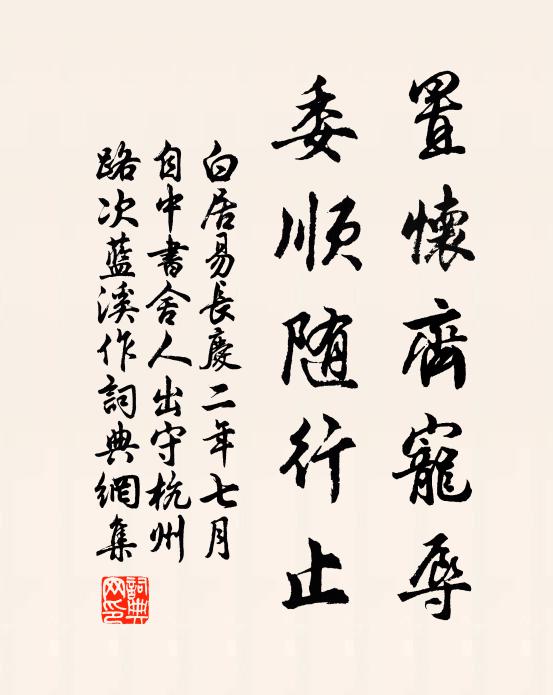 置懷齊寵辱
委順随行止
白居易長慶二年七月
自中書舍人出守杭州
路次藍溪作詞典網集
詞典网印